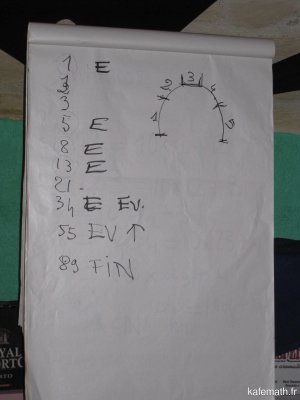 1 E
2
3
5 E
8 E
13 E
21 -
34 E EV.
55 EV ↑
89 FIN
1 2 3 4 5
YAL
ORTO
kafemath.fr